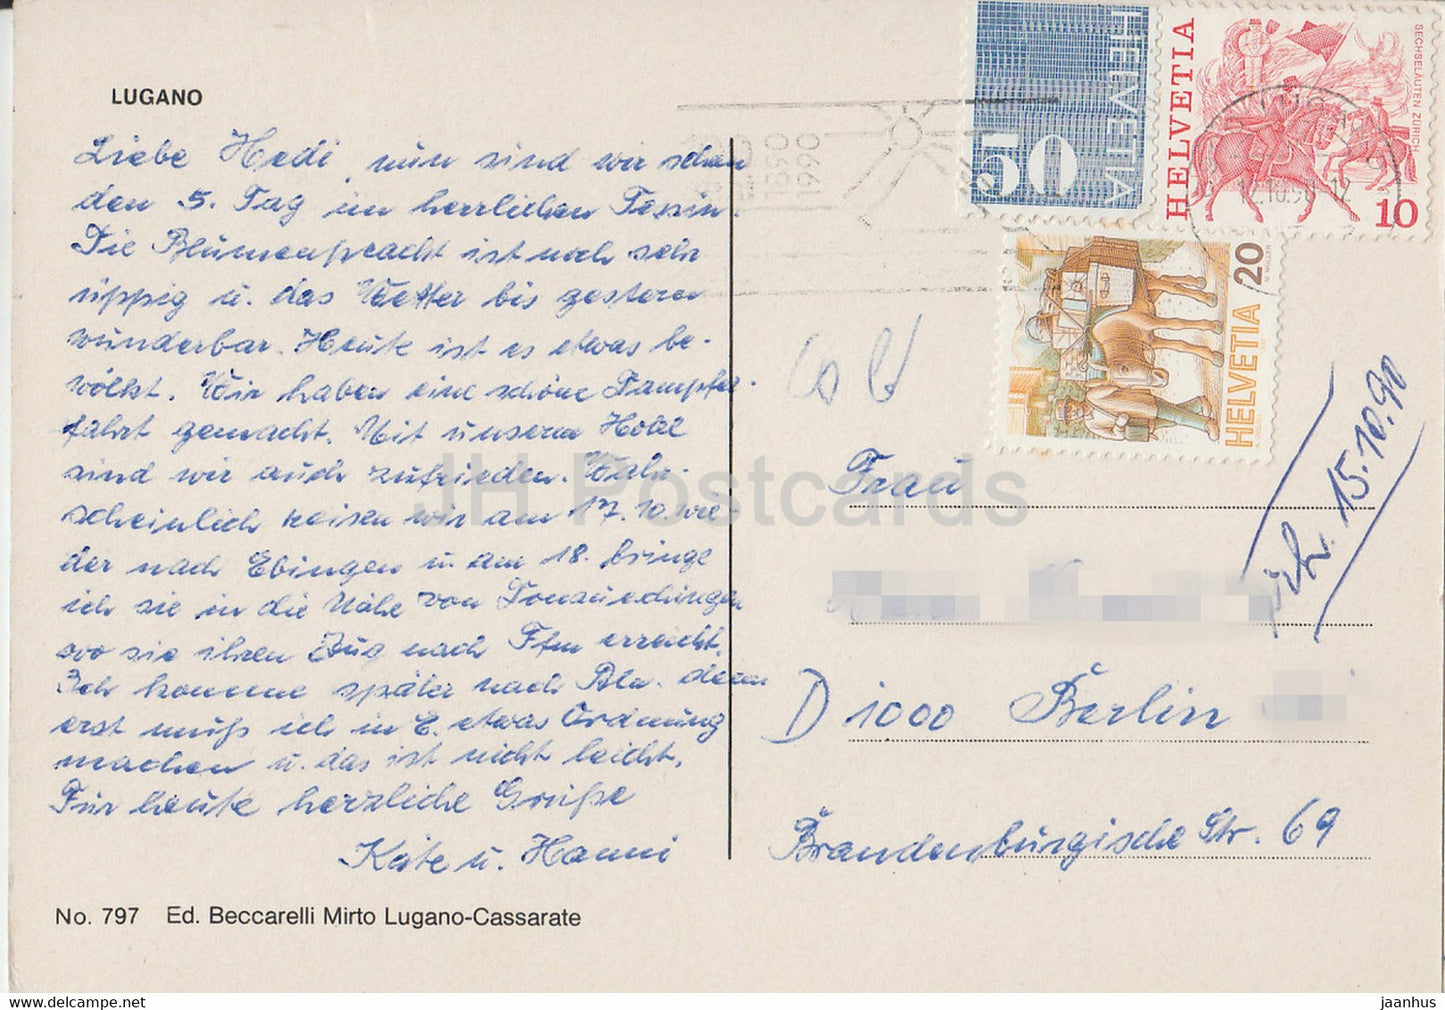 LUGANO
Liebe Hedi, nun sind wir schon
den 5. Tag im herrlichen Tessin.
Die Blumenpracht ist noch sehr
üppig u. das Wetter bis gestern
wunderbar. Heute ist es etwas be-
wölkt. Wir haben eine schöne Dampfer-
fahrt gemacht. Mit unserm Hotel
sind wir auch zufrieden. Wahr-
scheinlich reisen wir am 17.10. wie-
der nach Ebingen u. am 18. bringe
ich sie in die Nähe von Donaueschingen
wo sie ihren Zug nach Ffm erreicht.
Ich komme später nach Bln. denn
erst muß ich in E. etwas Ordnung
machen u. das ist nicht leicht.
Für heute herzliche Grüße
Käte u. Hanni
No. 797 Ed. Beccarelli Mirto Lugano-Cassarate
HELVETIA
50
HELVETIA
SECHSELÄUTEN ZÜRICH
10
12.10.90-12
6900
HELVETIA
20
Frau
D 1000 Berlin
Brandenburgische Str. 69
15.10.90
JH Postcards
jaanhus